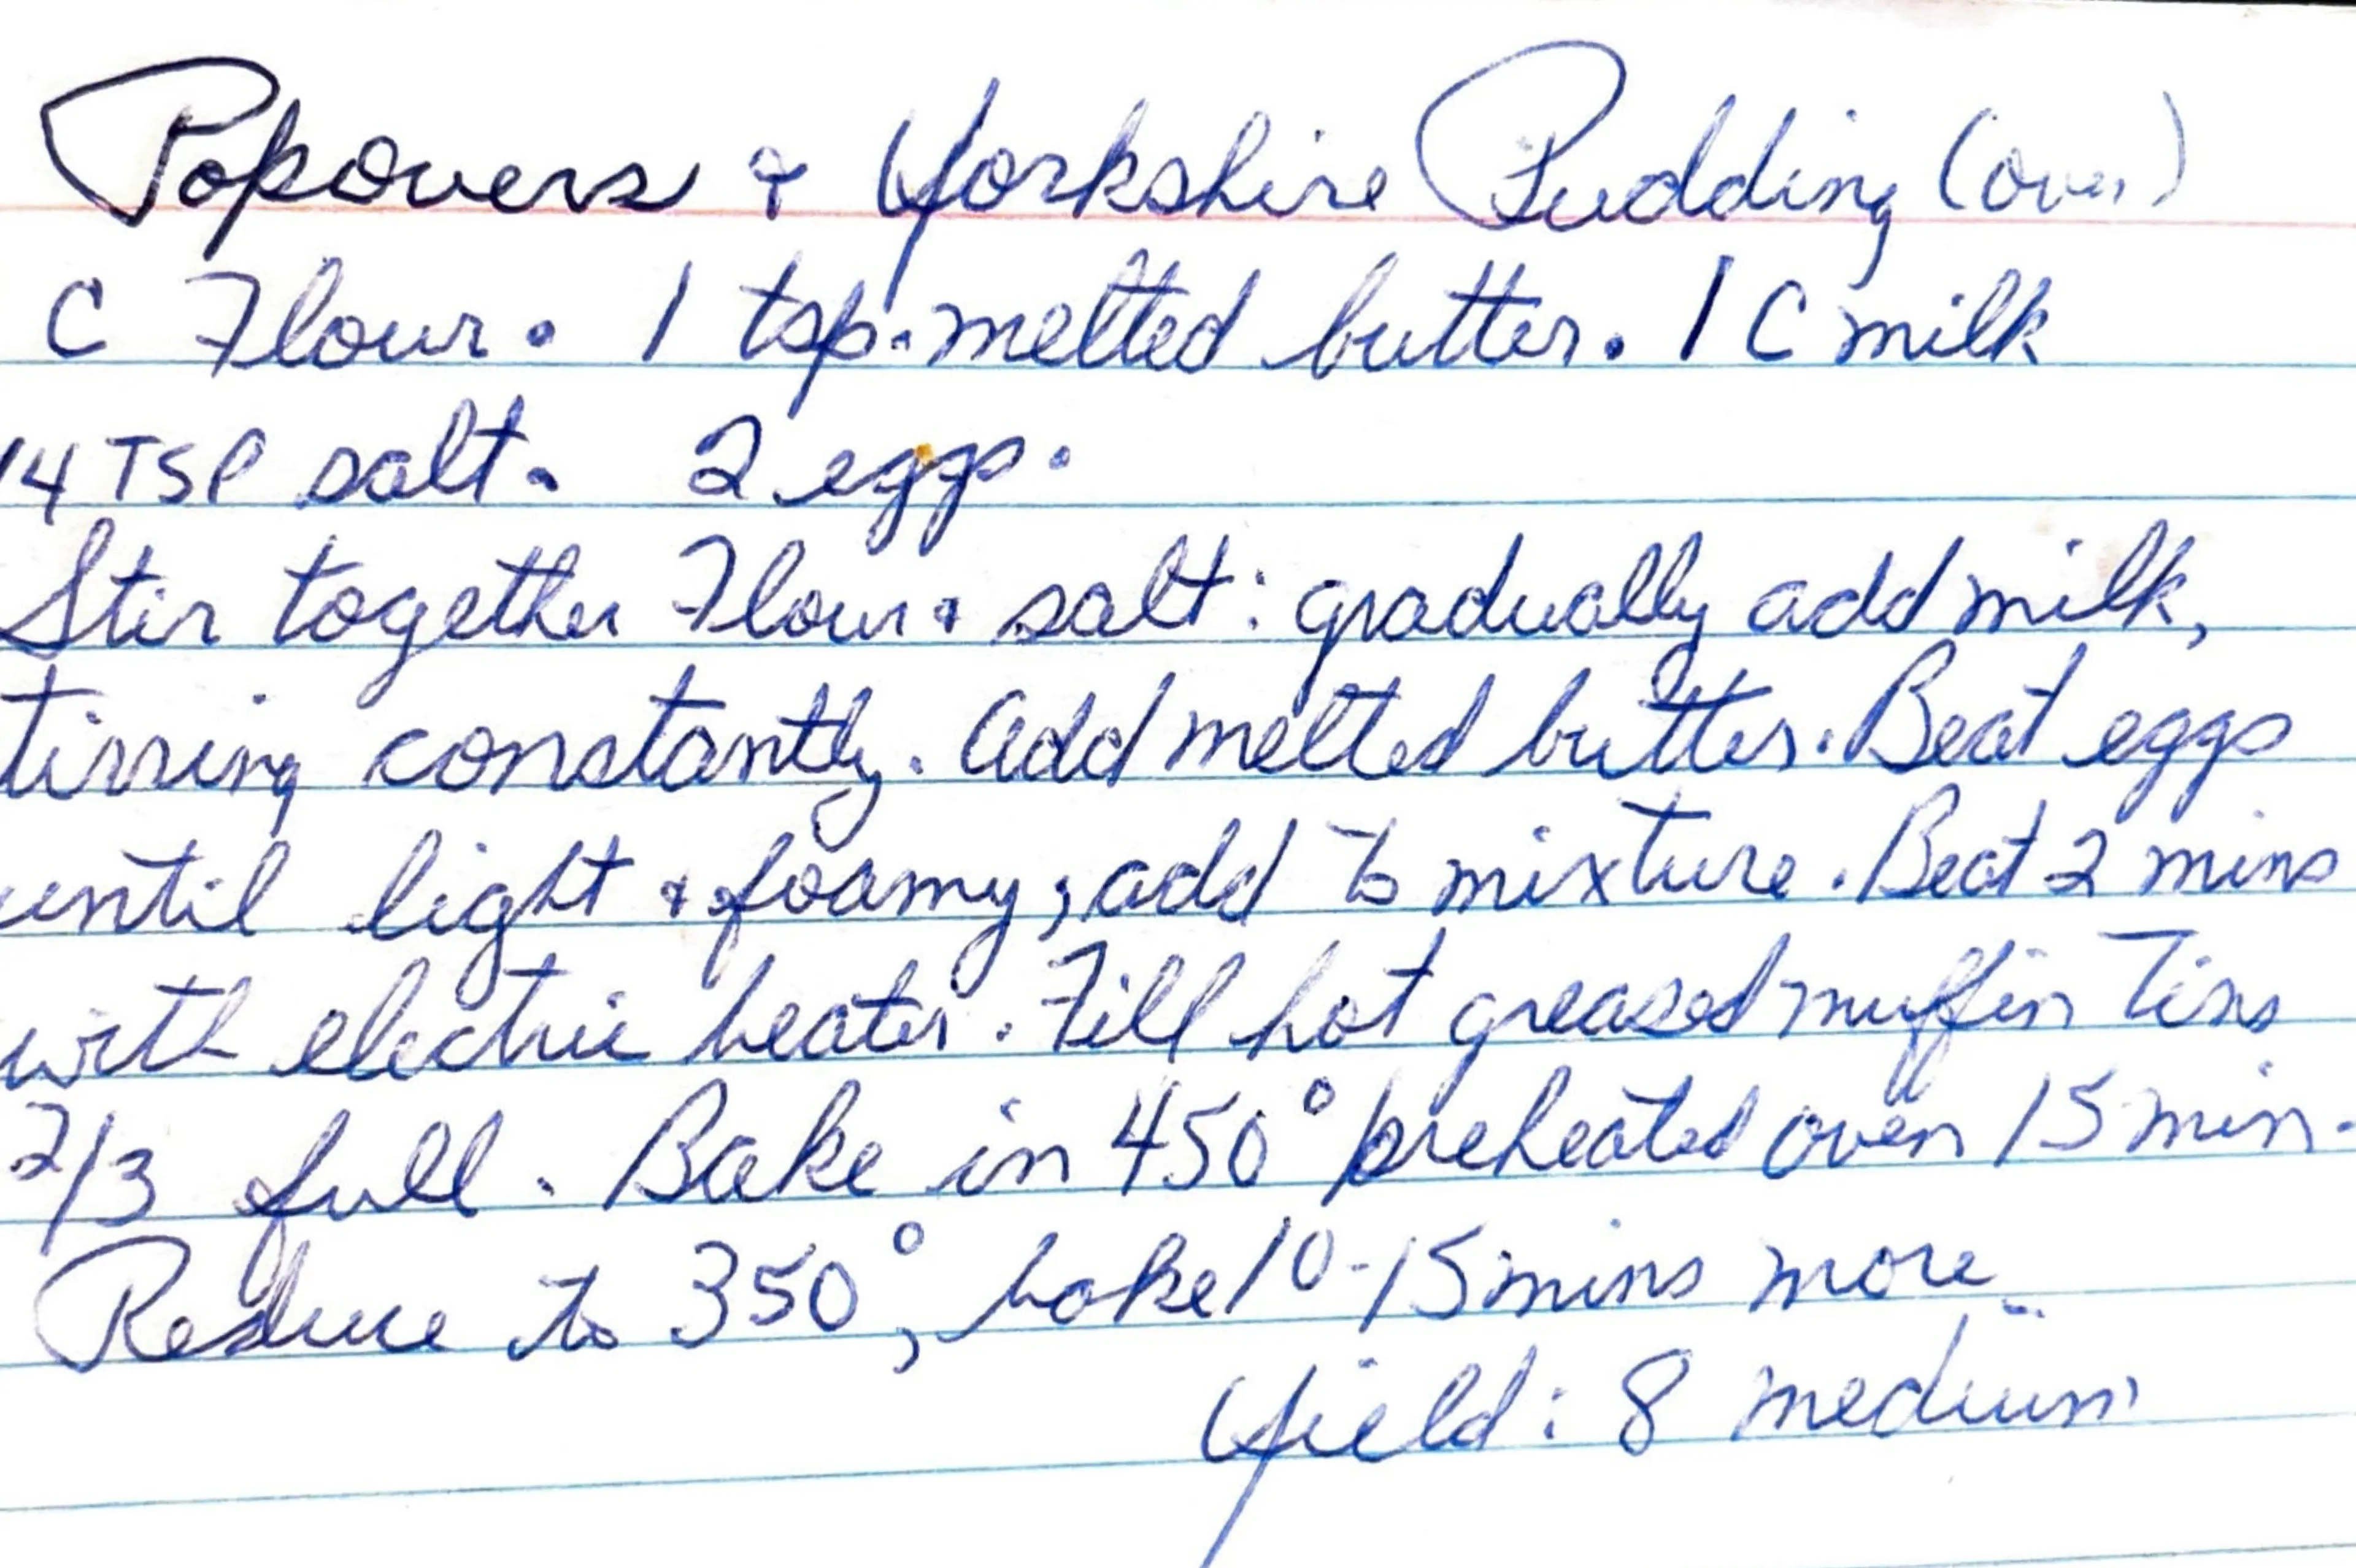 Popovers & Yorkshire Pudding (over)
C Flour. 1 tsp. melted butter. 1 C milk
14 TSP salt. 2 eggs.
Stir together Flour & salt: gradually add milk,
tirring constantly. Add melted butter. Beat eggs
until light & foamy; add to mixture. Beat 2 mins
with electric beater. Fill hot greased muffin Tins
2/3 full. Bake in 450° preheated oven 15 min.
Reduce to 350°, bake 10-15 mins more
Yield: 8 medium